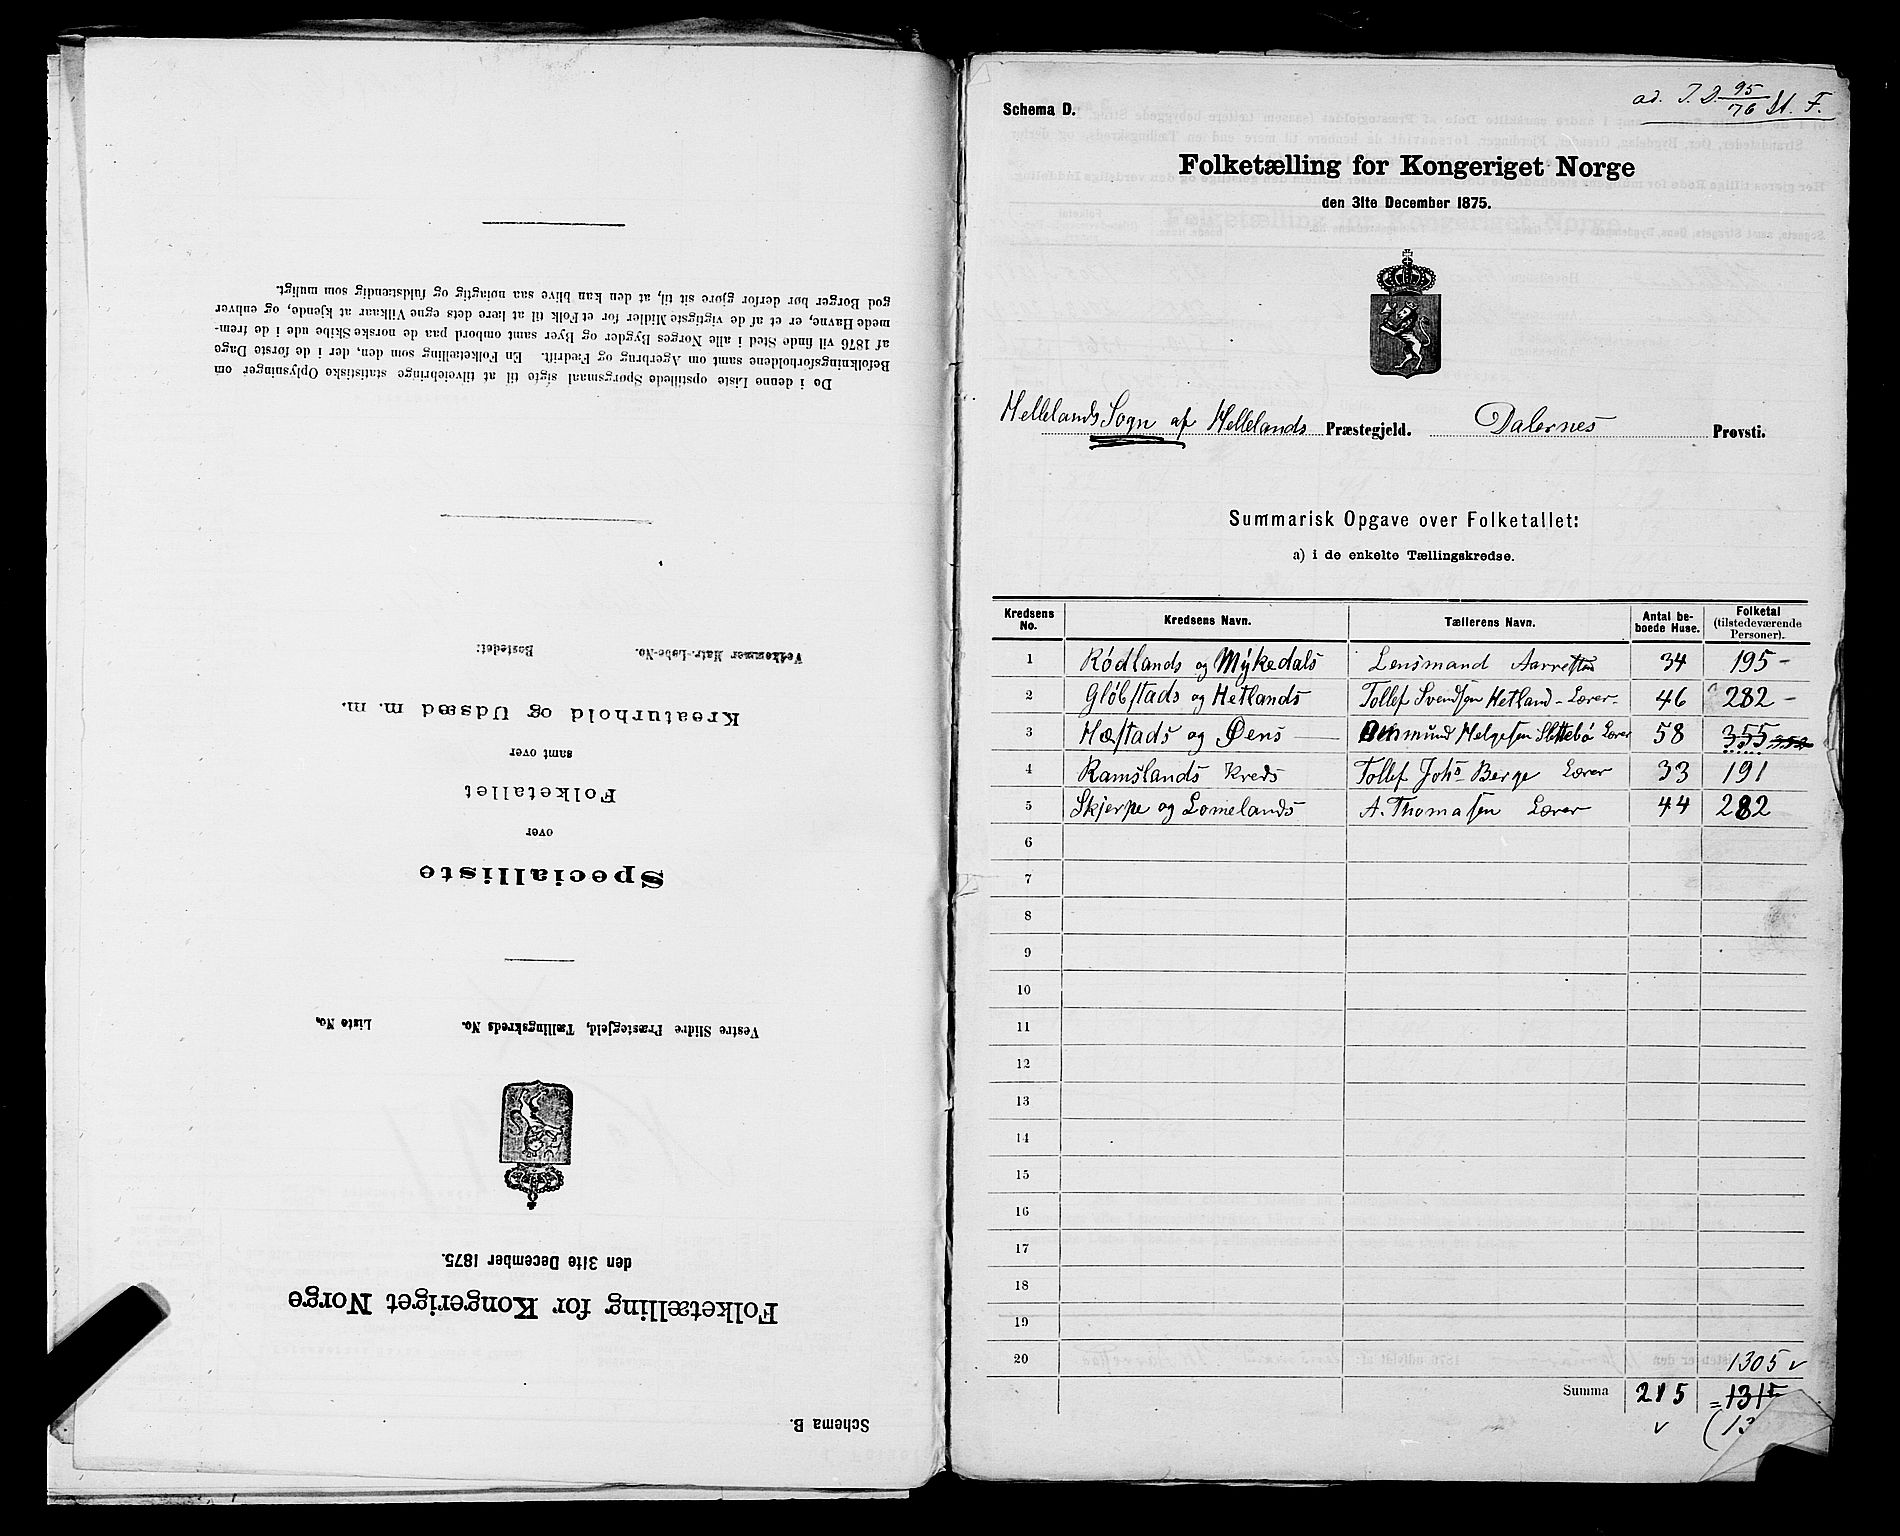 Schema B.
Folketælling for Kongeriget Norge
den 31te December 1875.
Vestre Slidre Præstegjeld, Tællingskreds No. Liste No.
Specialliste
over
Folketallet
samt over
Kreaturhold og Udsæd m. m.
Vedkommer Matr.-Løbe-No. Bostedet:
De i denne Liste opstillede Spørgsmaal sigte til at tilveiebringe statistiske Oplysninger om
Befolkningsforholdene samt om Agerbrug og Fædrift. En Folketælling som den, der i de første Dage
af 1876 vil finde Sted i alle Norges Bygder og Byer samt ombord paa de norske Skibe ude i de frem-
mede Havne, er et af de vigtigste Midler for et Folk til at lære dets egne Vilkaar at kjende, og enhver
god Borger bør derfor gjøre sit til, at den kan blive saa nøiagtig og fuldstændig som muligt.
Schema D.
ad. J. D. 95/76 St. F.
Folketælling for Kongeriget Norge
den 31te December 1875.
Hellelands Sogn af Hellelands Præstegjeld. Dalernes Provsti.
Summarisk Opgave over Folketallet:
a) i de enkelte Tællingskredse.
Kredsens No. Kredsens Navn. Tællerens Navn. Antal be-boede Huse. Folketal (tilstedeværende Personer).
1 Rødlands og Mykedals Lensmand Aarrestad 34 195 -
2 Gløbstads og Hetlands Tollef Svendsen Hetland - Lærer - 46 282 -
3 Hæstads og Øens Helgesen Slettebø Lærer 58 355
4 Ramslands Kreds Tollef Johs Berge Lærer 33 191
5 Skjerpe og Lomelands A. Thomasen Lærer 44 282
6
7
8
9
10
11
12
13
14
15
16
17
18
19
20 1305 v
Summa 215 = 1315
v (13